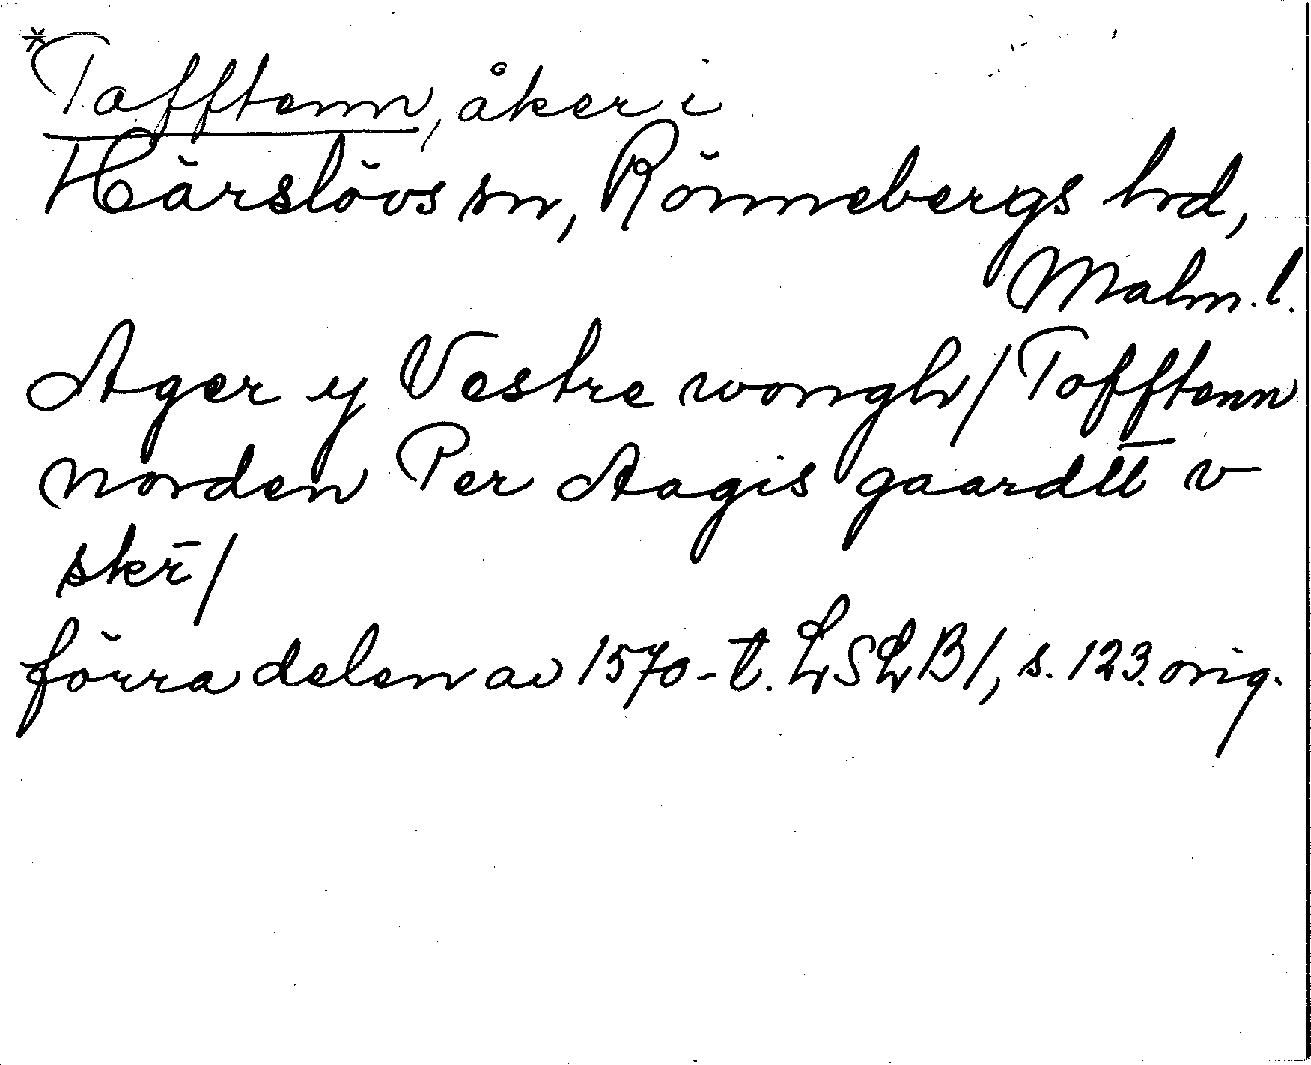 *
Tafftenn, åker i
Härslövs sn, Rönnebergs hd,
Malm. l.
Ager y Vestre wongh / Tofftenn
norden Per Aagis gaardtt v
skr̄ /
förra delen av 1570-t. LSLB1, s. 123. orig.